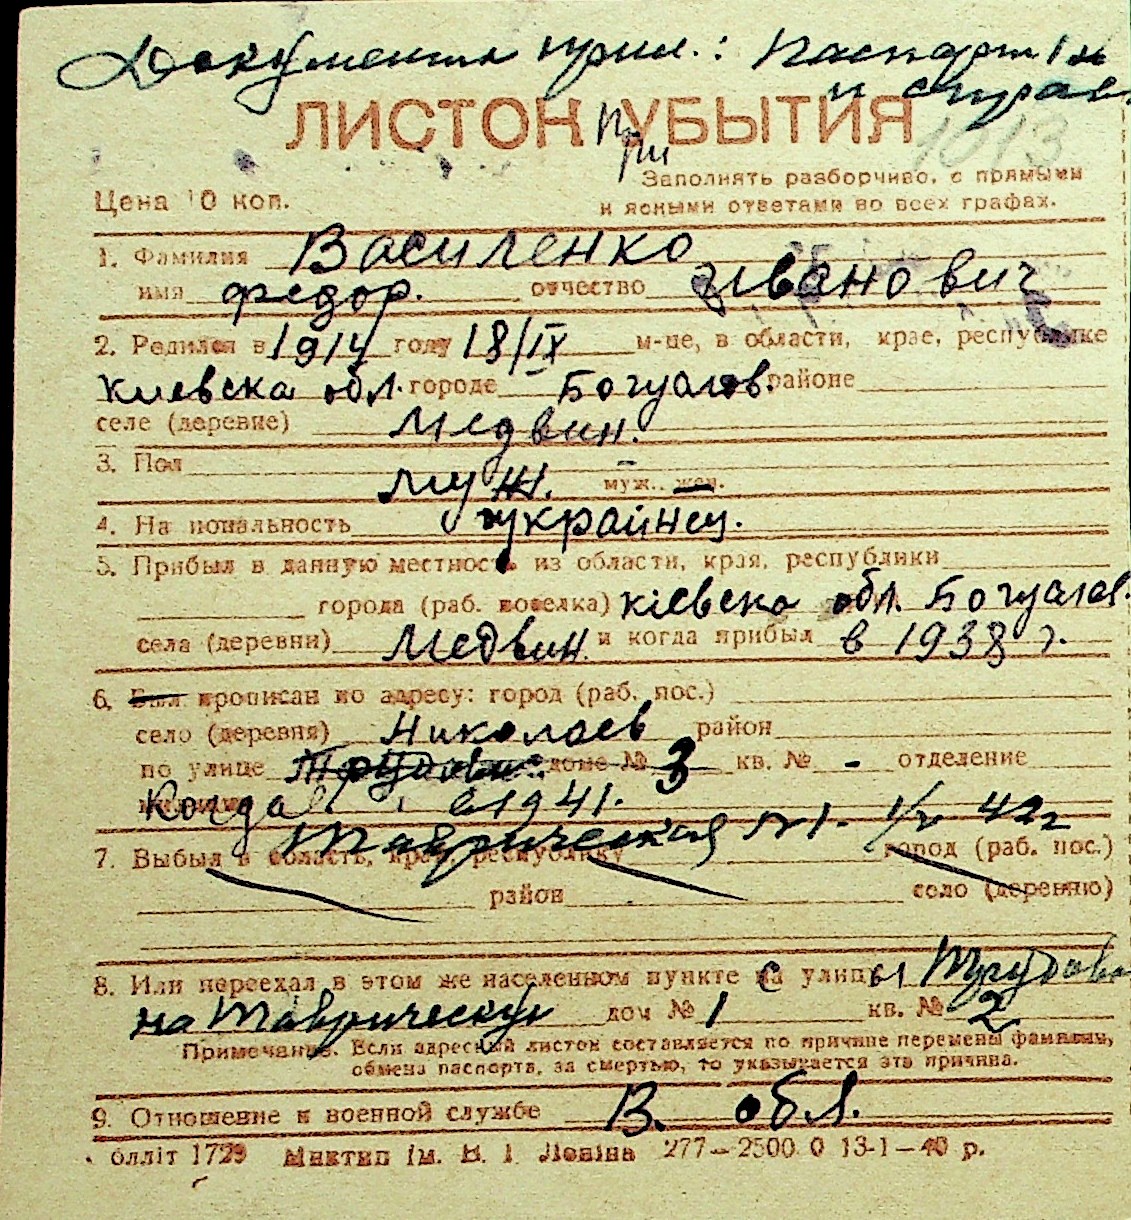 Документи прил.: Паспорт 1 м
и справ.
ЛИСТОК УБЫТИЯ
при
1013
Заполнять разборчиво, с прямыми
Цена 10 коп.
и ясными ответами во всех графах.
1. Фамилия Василенко
имя Федор. отчество Иванович
2. Родился в 1914 году 18/IX м-це, в области, крае, республике
Киевска обл. городе Богуслав. районе
селе (деревне) Медвин.
3. Пол муж. муж., жен.
4. Национальность украинец.
5. Прибыл в данную местность из области, края, республики
города (раб. поселка) Кіевска обл. Богуслав.
села (деревни) Медвин. и когда прибыл в 1938 г.
6. Был прописан по адресу: город (раб. пос.)
село (деревня) Николаев район
по улице Трудовая доме № 3 кв. № - отделение
Когда в 1941.
Таврическая №1. 1/V 42г
7. Выбыл в область, край, республику город (раб. пос.)
район село (деревню)
8. Или переехал в этом же населенном пункте с улицы Трудова
на Таврическую дом № 1 кв. № 2
Примечание. Если адресный листок составляется по причине перемены фамилии,
обмена паспорта, за смертью, то указывается эта причина.
9. Отношение к военной службе В. обл.
блліт 1729 Миктип ім. В. І. Леніна 277—2500 0 13-1—40 р.